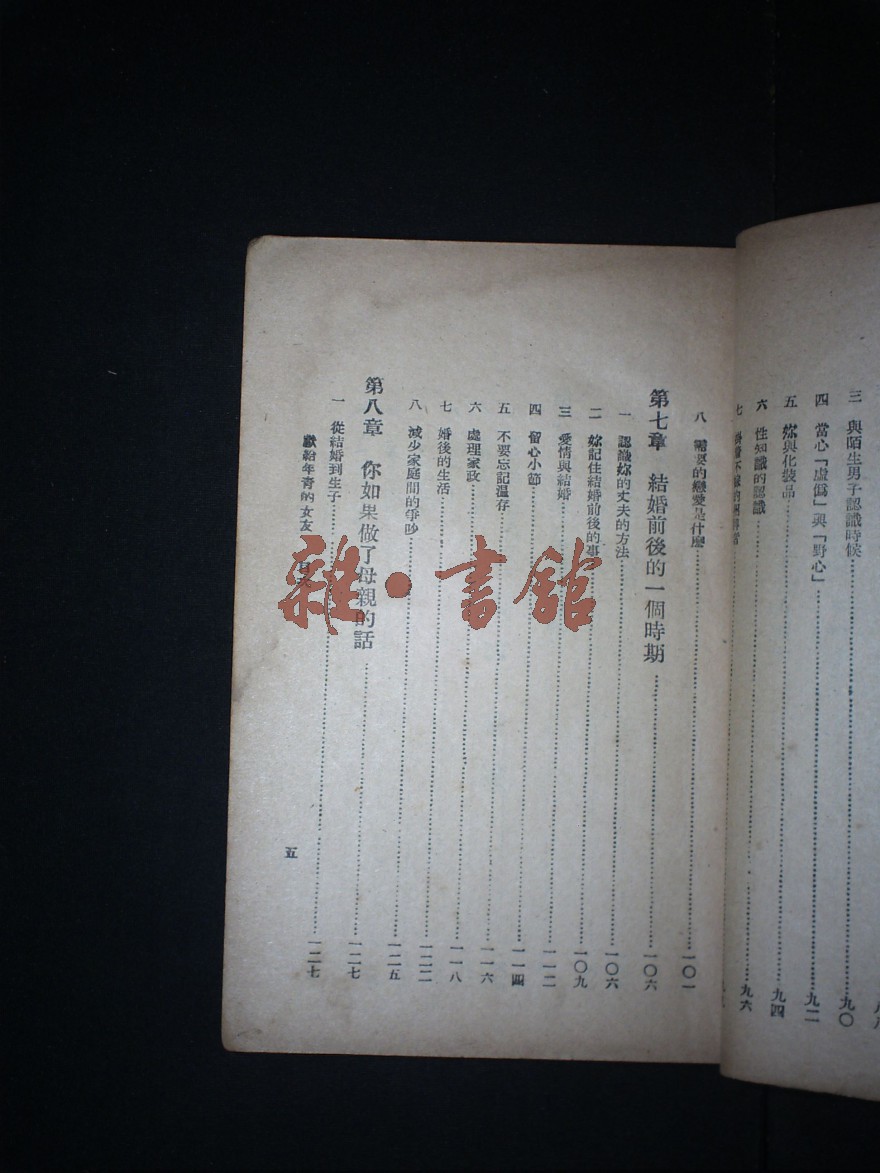 三 與陌生男子認識時候……九〇
四 當心「虛僞」與「野心」……九二
五 妳與化裝品……九四
六 性知識的認識……九六
七
八 需要的戀愛是什麼……一〇一
第七章 結婚前後的一個時期……一〇六
一 認識妳的丈夫的方法……一〇六
二 妳記住結婚前後的事……一〇九
三 愛情與結婚……一一二
四 留心小節……一一四
五 不要忘記溫存……一一六
六 處理家政……一一八
七 婚後的生活……一二二
八 減少家庭間的爭吵……一二五
第八章 你如果做了母親的話……一二七
一 從結婚到生子……一二七
獻給年青的女友 五
雜·書館